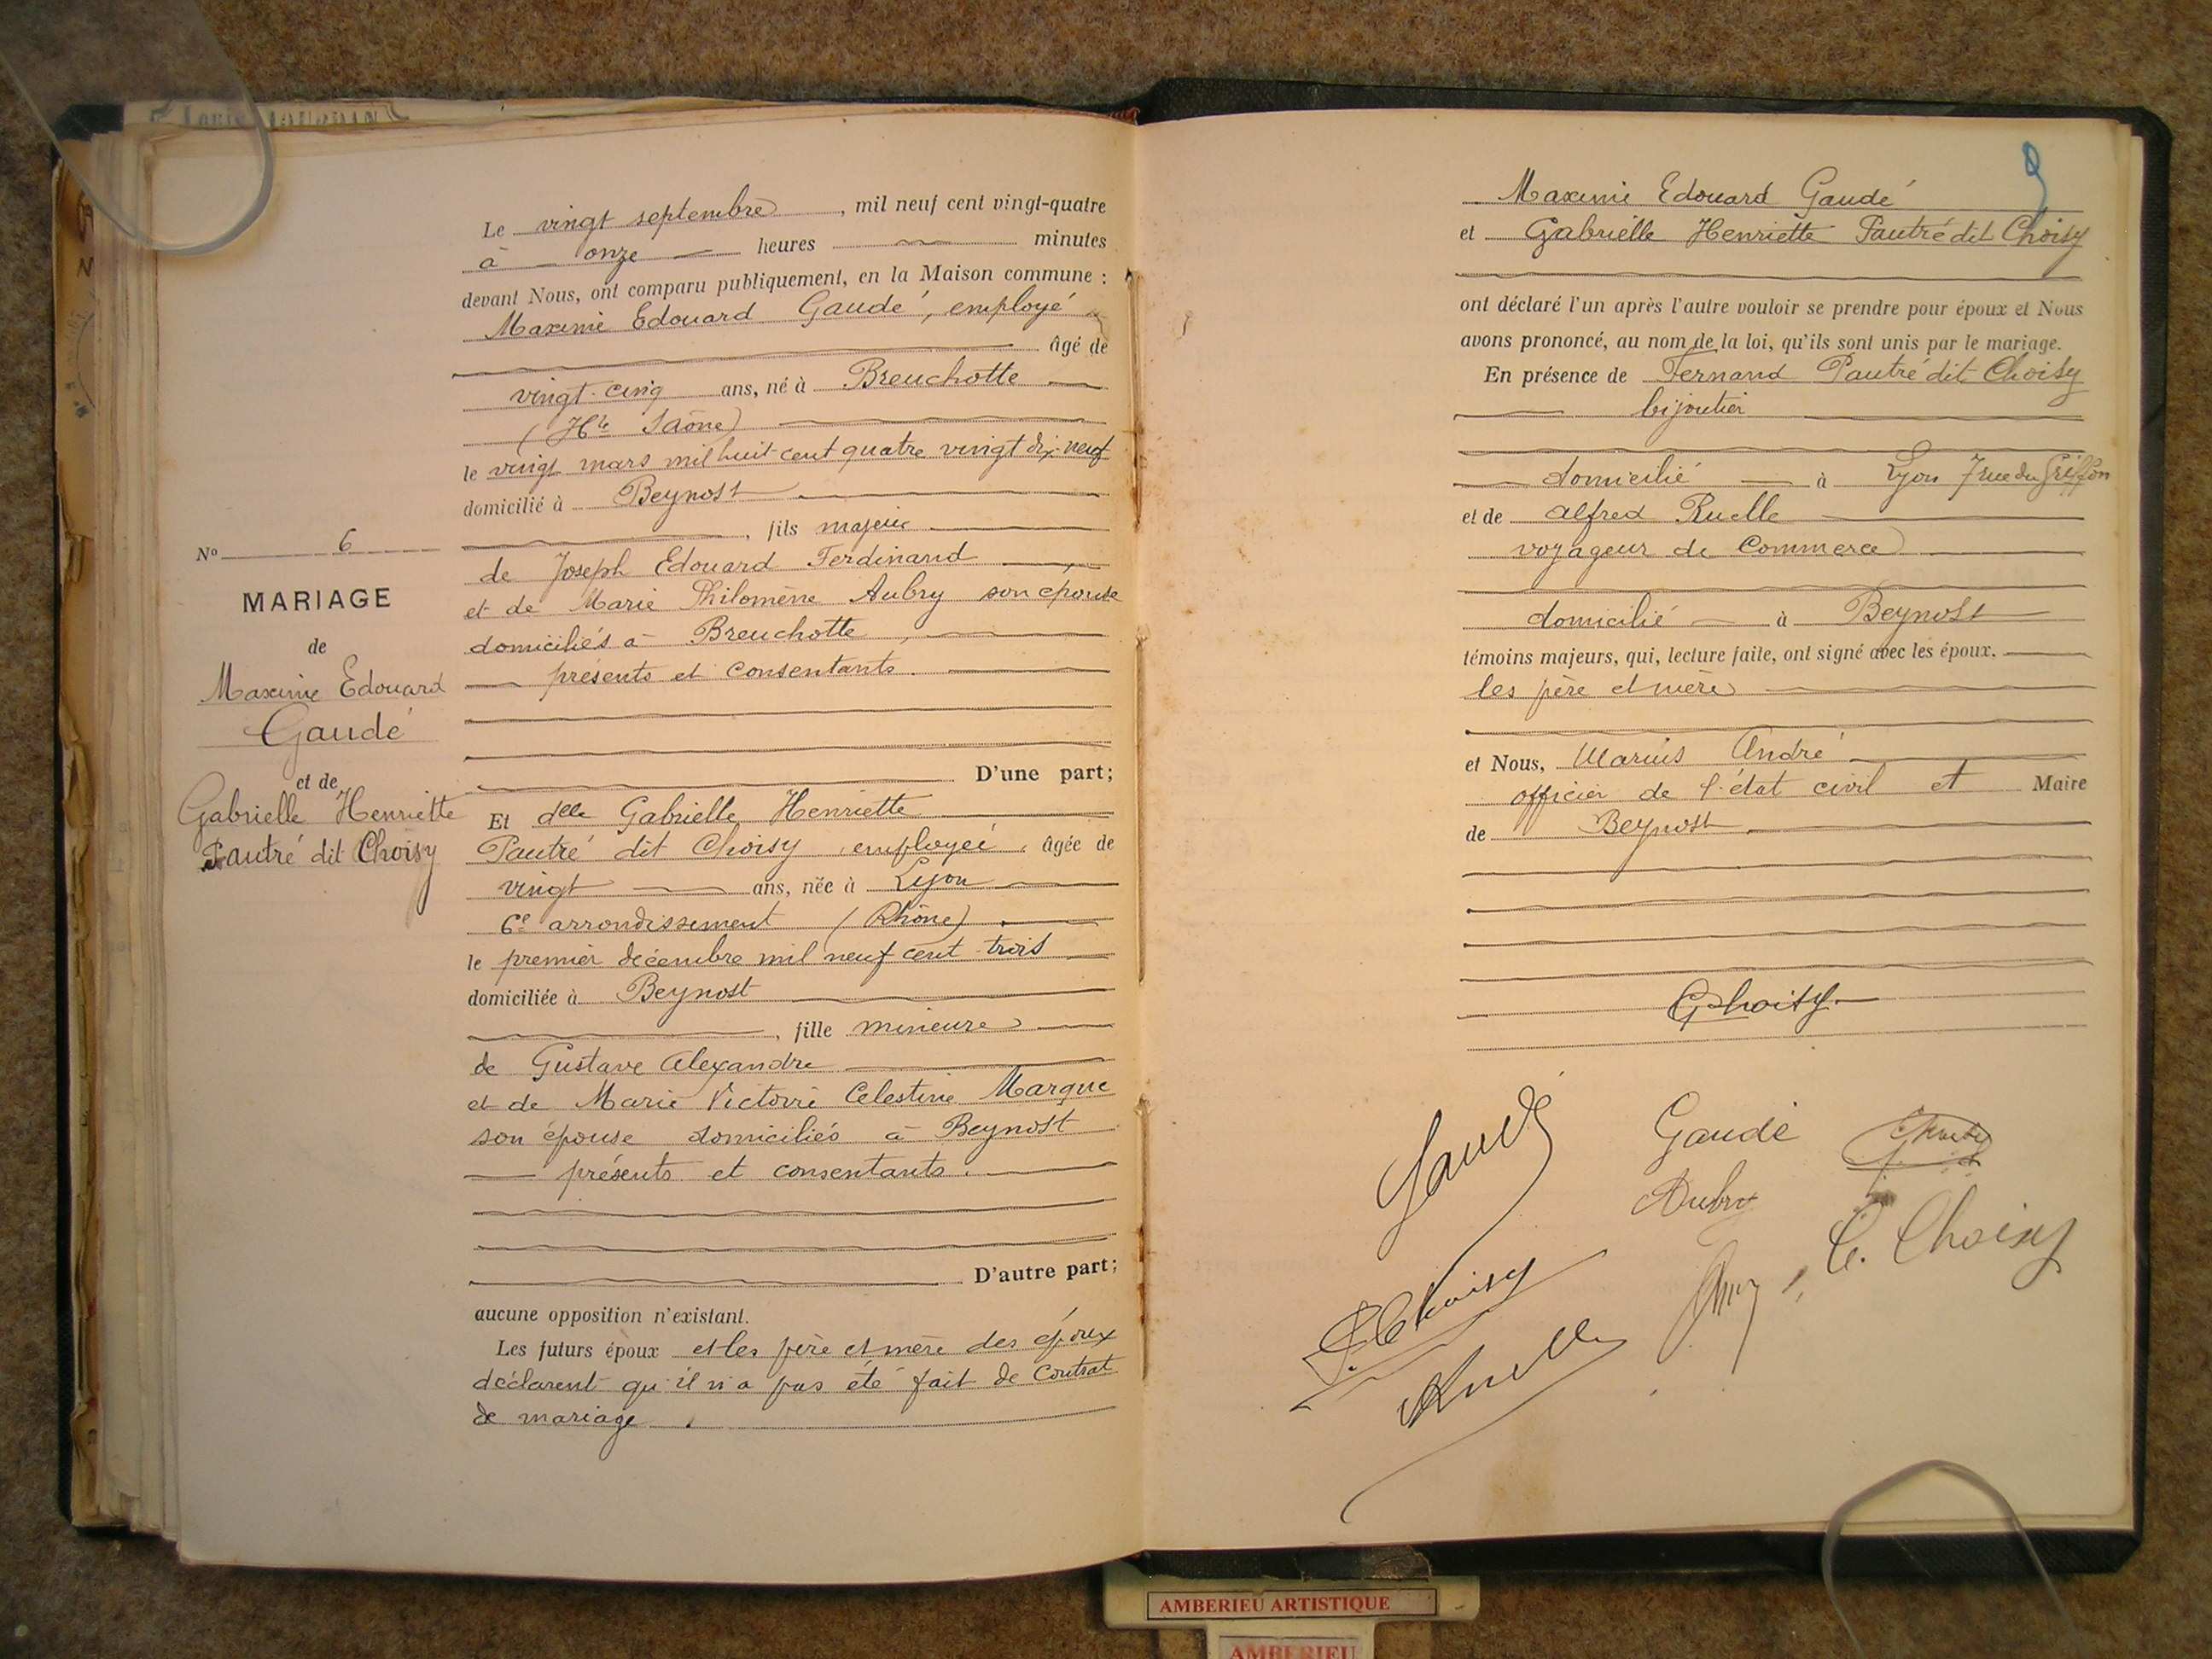 Nº 6
MARIAGE
de
Maxime Edouard
Gaudé
et de
Gabrielle Henriette
Pautré dit Choisy
Le vingt septembre, mil neuf cent vingt-quatre
à onze heures minutes
devant Nous, ont comparu publiquement, en la Maison commune :
Maxime Edouard Gaudé, employé
âgé de
vingt-cinq ans, né à Breuchotte
(Hte Saône)
le vingt mars mil huit cent quatre vingt dix-neuf
domicilié à Beynost
, fils majeur
de Joseph Edouard Ferdinand
et de Marie Philomène Aubry son épouse
domiciliés à Breuchotte,
présents et consentants.
D'une part;
Et delle Gabrielle Henriette
Pautré dit Choisy employée, âgée de
vingt ans, née à Lyon
6e arrondissement (Rhône)
le premier décembre mil neuf cent trois
domiciliée à Beynost
, fille mineure
de Gustave Alexandre
et de Marie Victoire Celestine Marque
son épouse domiciliés à Beynost
présents et consentants.
D'autre part;
aucune opposition n'existant.
Les futurs époux et les père et mère des époux
déclarent qu'il n'a pas été fait de contrat
de mariage.
9
Maxime Edouard Gaudé
et Gabrielle Henriette Pautré dit Choisy
ont déclaré l'un après l'autre vouloir se prendre pour époux et Nous
avons prononcé, au nom de la loi, qu'ils sont unis par le mariage.
En présence de Fernand Pautré dit Choisy
bijoutier
domicilié à Lyon 7 rue du Griffon
et de Alfred Ruelle
voyageur de Commerce
domicilié à Beynost
témoins majeurs, qui, lecture faite, ont signé avec les époux.
les père et mère
et Nous, Marius André
officier de l'état civil et Maire
de Beynost
GChoisy
Gaudé
Gaudé
Aubry
C. Choisy
F. Choisy
ARuelle
AMBERIEU ARTISTIQUE
AMBERIEU